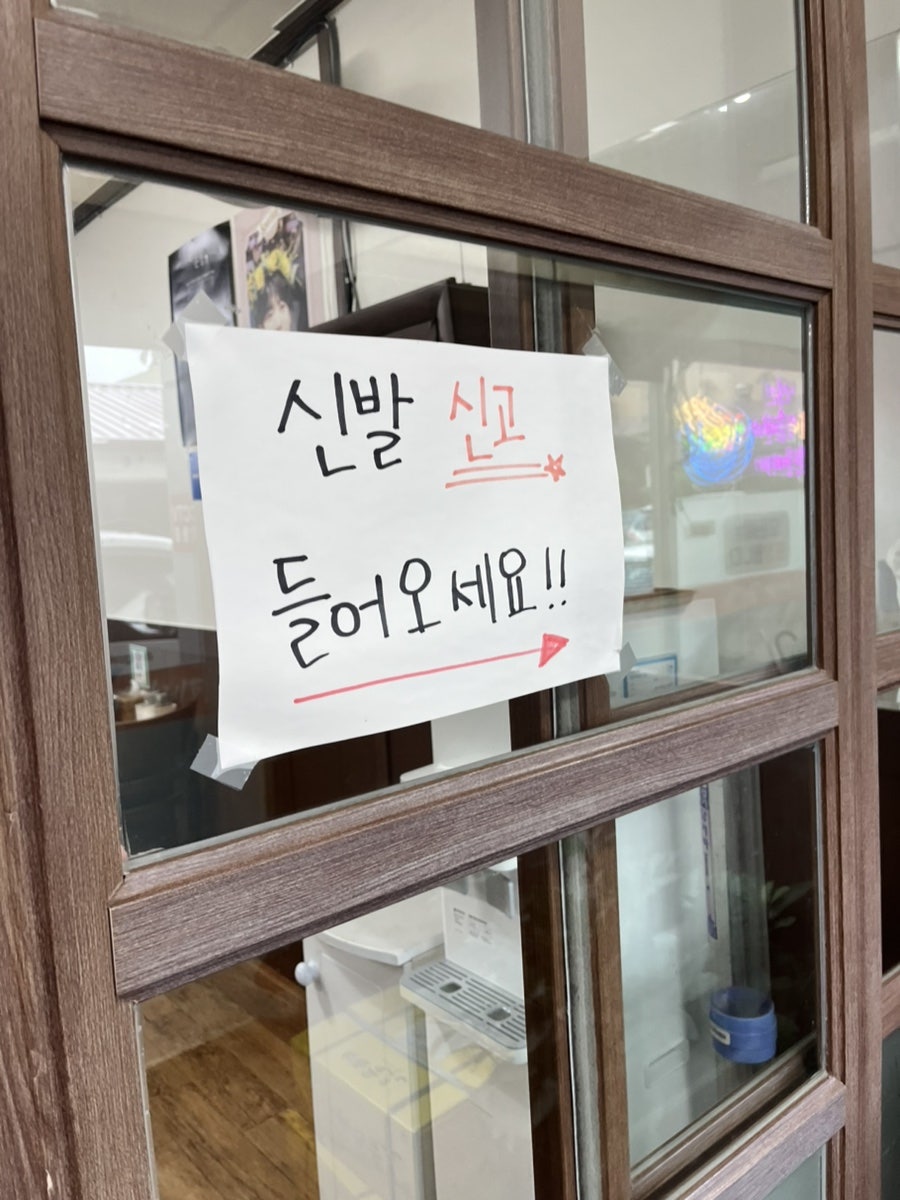 신발 신고
들어오세요!!